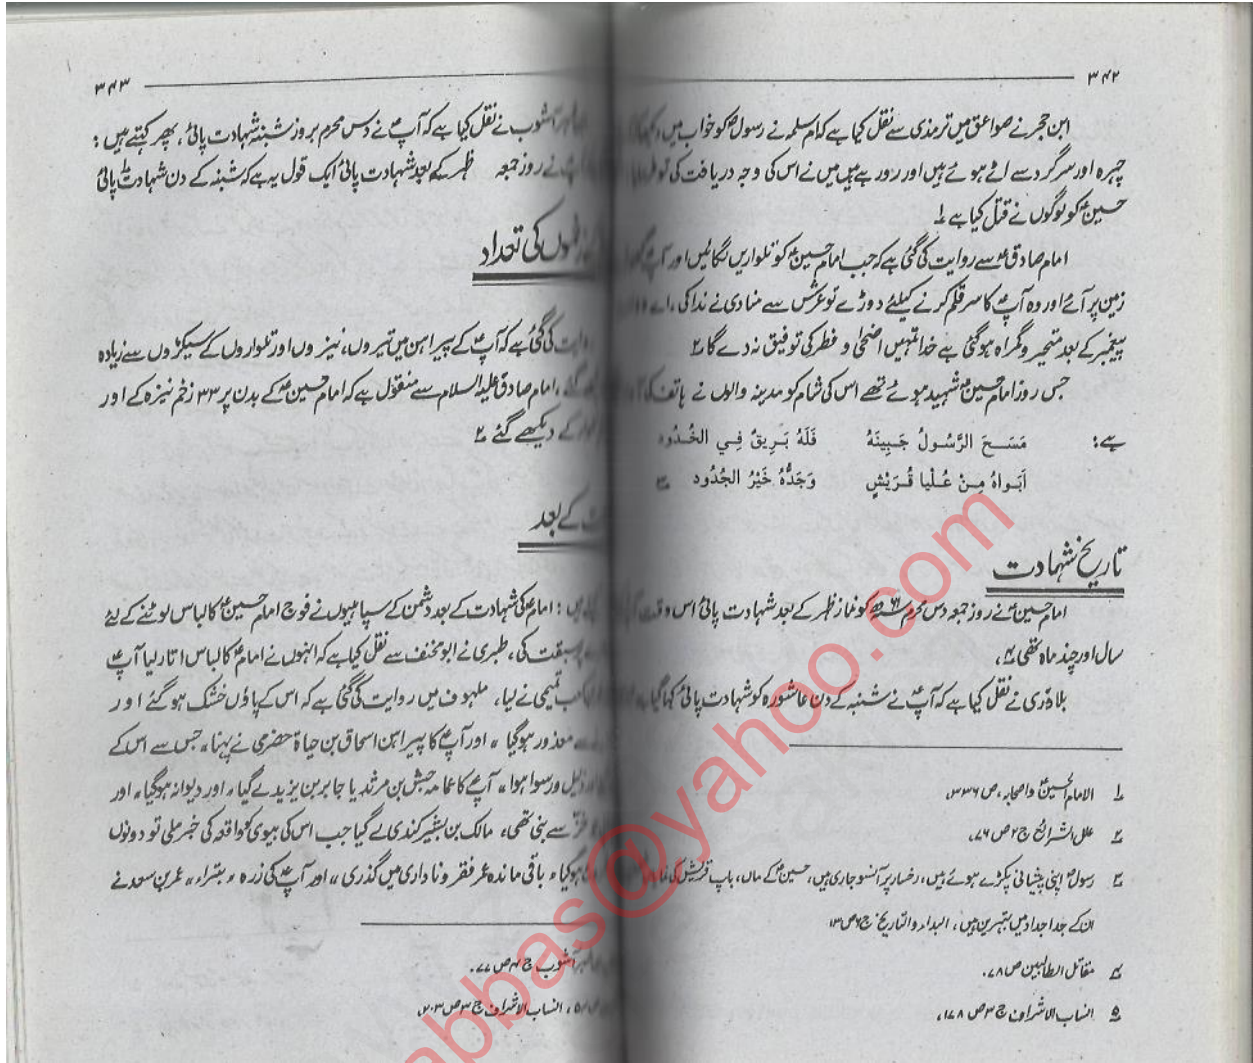 ۳۴۲
ابن حجر نے صواعق میں ترمذی سے نقل کیا ہے کہ ام سلمہ نے رسولؐ کو خواب میں دیکھا
چہرہ اور سر گرد سے اٹے ہوئے ہیں اور رو رہے ہیں میں نے اس کی وجہ دریافت کی تو فرمایا
حسینؑ کو لوگوں نے قتل کیا ہے ۱؎
امام صادقؑ سے روایت کی گئی ہے کہ جب امام حسینؑ کو تلواریں لگائیں اور آپؑ
زمین پر آئے اور وہ آپؑ کا سر قلم کرنے کیلئے دوڑے تو عرش سے منادی نے ندا کی، اے
پیغمبر کے بعد متحیر و گمراہ ہو گئی ہے خدا تمہیں اضحیٰ و فطر کی توفیق نہ دے گا ۲؎
جس روز امام حسینؑ شہید ہوئے تھے اس کی شام کو مدینہ والوں نے ہاتف کی
ہے: مَسَحَ الرَّسُولُ جَبِینَهُ فَلَهُ بَرِیقٌ فِي الخُدُود
اَبَواهُ مِنْ عُلْیا قُرَیْشٍ وَجَدُّهُ خَیْرُ الجُدُود ۳؎
تاریخ شہادت
امام حسینؑ نے روز جمعہ دس محرم ۶۱ھ کو نماز ظہر کے بعد شہادت پائی اس وقت
سال اور چند ماہ تھی ۴؎،
بلاذری نے نقل کیا ہے کہ آپؑ نے شنبہ کے دن عاشورہ کو شہادت پائی کہا گیا ہے
۱؎ الامام الحسینؑ واصحابہ، ص ۳۳۶،
۲؎ علل الشرائع ج ۲ ص ۷۶،
۳؎ رسولؐ اپنی پیشانی پکڑے ہوئے ہیں، رخسار پر آنسو جاری ہیں، حسینؑ کے ماں، باپ قریش کی
ان کے جد اجداد میں بہترین ہیں، البداء والتاریخ ج ۶ ص ۱۳
۴؎ مقاتل الطالبیین ص ۷۸،
۵؎ انساب الاشراف ج ۳ ص ۱۷۸،
۳۴۳
آشوب نے نقل کیا ہے کہ آپؑ نے دس محرم بروز شنبہ شہادت پائی، پھر کہتے ہیں:
نے روز جمعہ ظہر کے بعد شہادت پائی ایک قول یہ ہے کہ شنبہ کے دن شہادت پائی
کی تعداد
کی گئی ہے کہ آپؑ کے پیراہن میں تیروں، نیزوں اور تلواروں کے سیکڑوں سے زیادہ
گئے، امام صادق علیہ السلام سے منقول ہے کہ امام حسینؑ کے بدن پر ۳۳ زخم نیزہ کے اور
کے دیکھے گئے ۲؎
کے بعد
ہیں: امامؑ کی شہادت کے بعد دشمن کے سپاہیوں نے فوج امام حسینؑ کا لباس لوٹنے کے لئے
سبقت کی، طبری نے ابو مخنف سے نقل کیا ہے کہ انہوں نے امامؑ کا لباس اتار لیا آپؑ
تمیمی نے لیا، ملہوف میں روایت کی گئی ہے کہ اس کے پاؤں خشک ہو گئے اور
سے معذور ہو گیا، اور آپؑ کا پیراہن اسحاق بن حیاۃ حضرمی نے پہنا، جس سے اس کے
ذلیل و رسوا ہوا، آپؑ کا عمامہ حبش بن مرثد یا جابر بن یزید لے گیا، اور دیوانہ ہو گیا، اور
سے بنی تھی، مالک بن بشیر کندی لے گیا جب اس کی بیوی کو واقعہ کی خبر ملی تو دونوں
ہو گیا، باقی ماندہ عمر فقر و ناداری میں گذری، اور آپؑ کی زرہ، بتراء، عمر بن سعد نے
آشوب ج ۴ ص ۷۷،
انساب الاشراف ج ۳ ص ۲۰۳،
abbas@yahoo.com